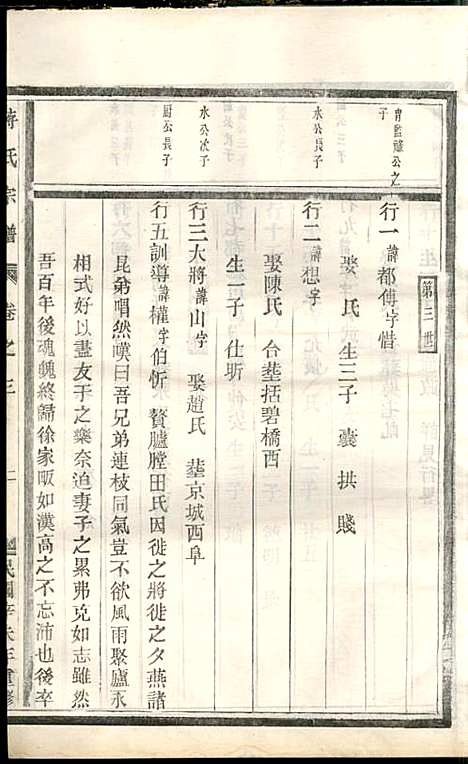 第三世
胄監驥公之子
行一諱都傳字惜
娶 氏 生三子 囊 拱 賤
水公長子
行二諱想字
娶陳氏 合塟括碧橋西
水公次子
行三大將諱山字 娶趙氏 塟京城西阜
生一子 仕圻
厨公長子
行五訓導諱權字伯忻 贅臚膛田氏因徙之將徙之夕燕諸
昆弟喟然嘆曰吾兄弟連枝同氣豈不欲風雨聚廬永
相式好以盡友于之樂奈迫妻子之累弗克如志雖然
吾百年後魂魄終歸徐家畈如漢高之不忘沛也後卒
蔣氏宗譜 卷之三 民國辛未三重修